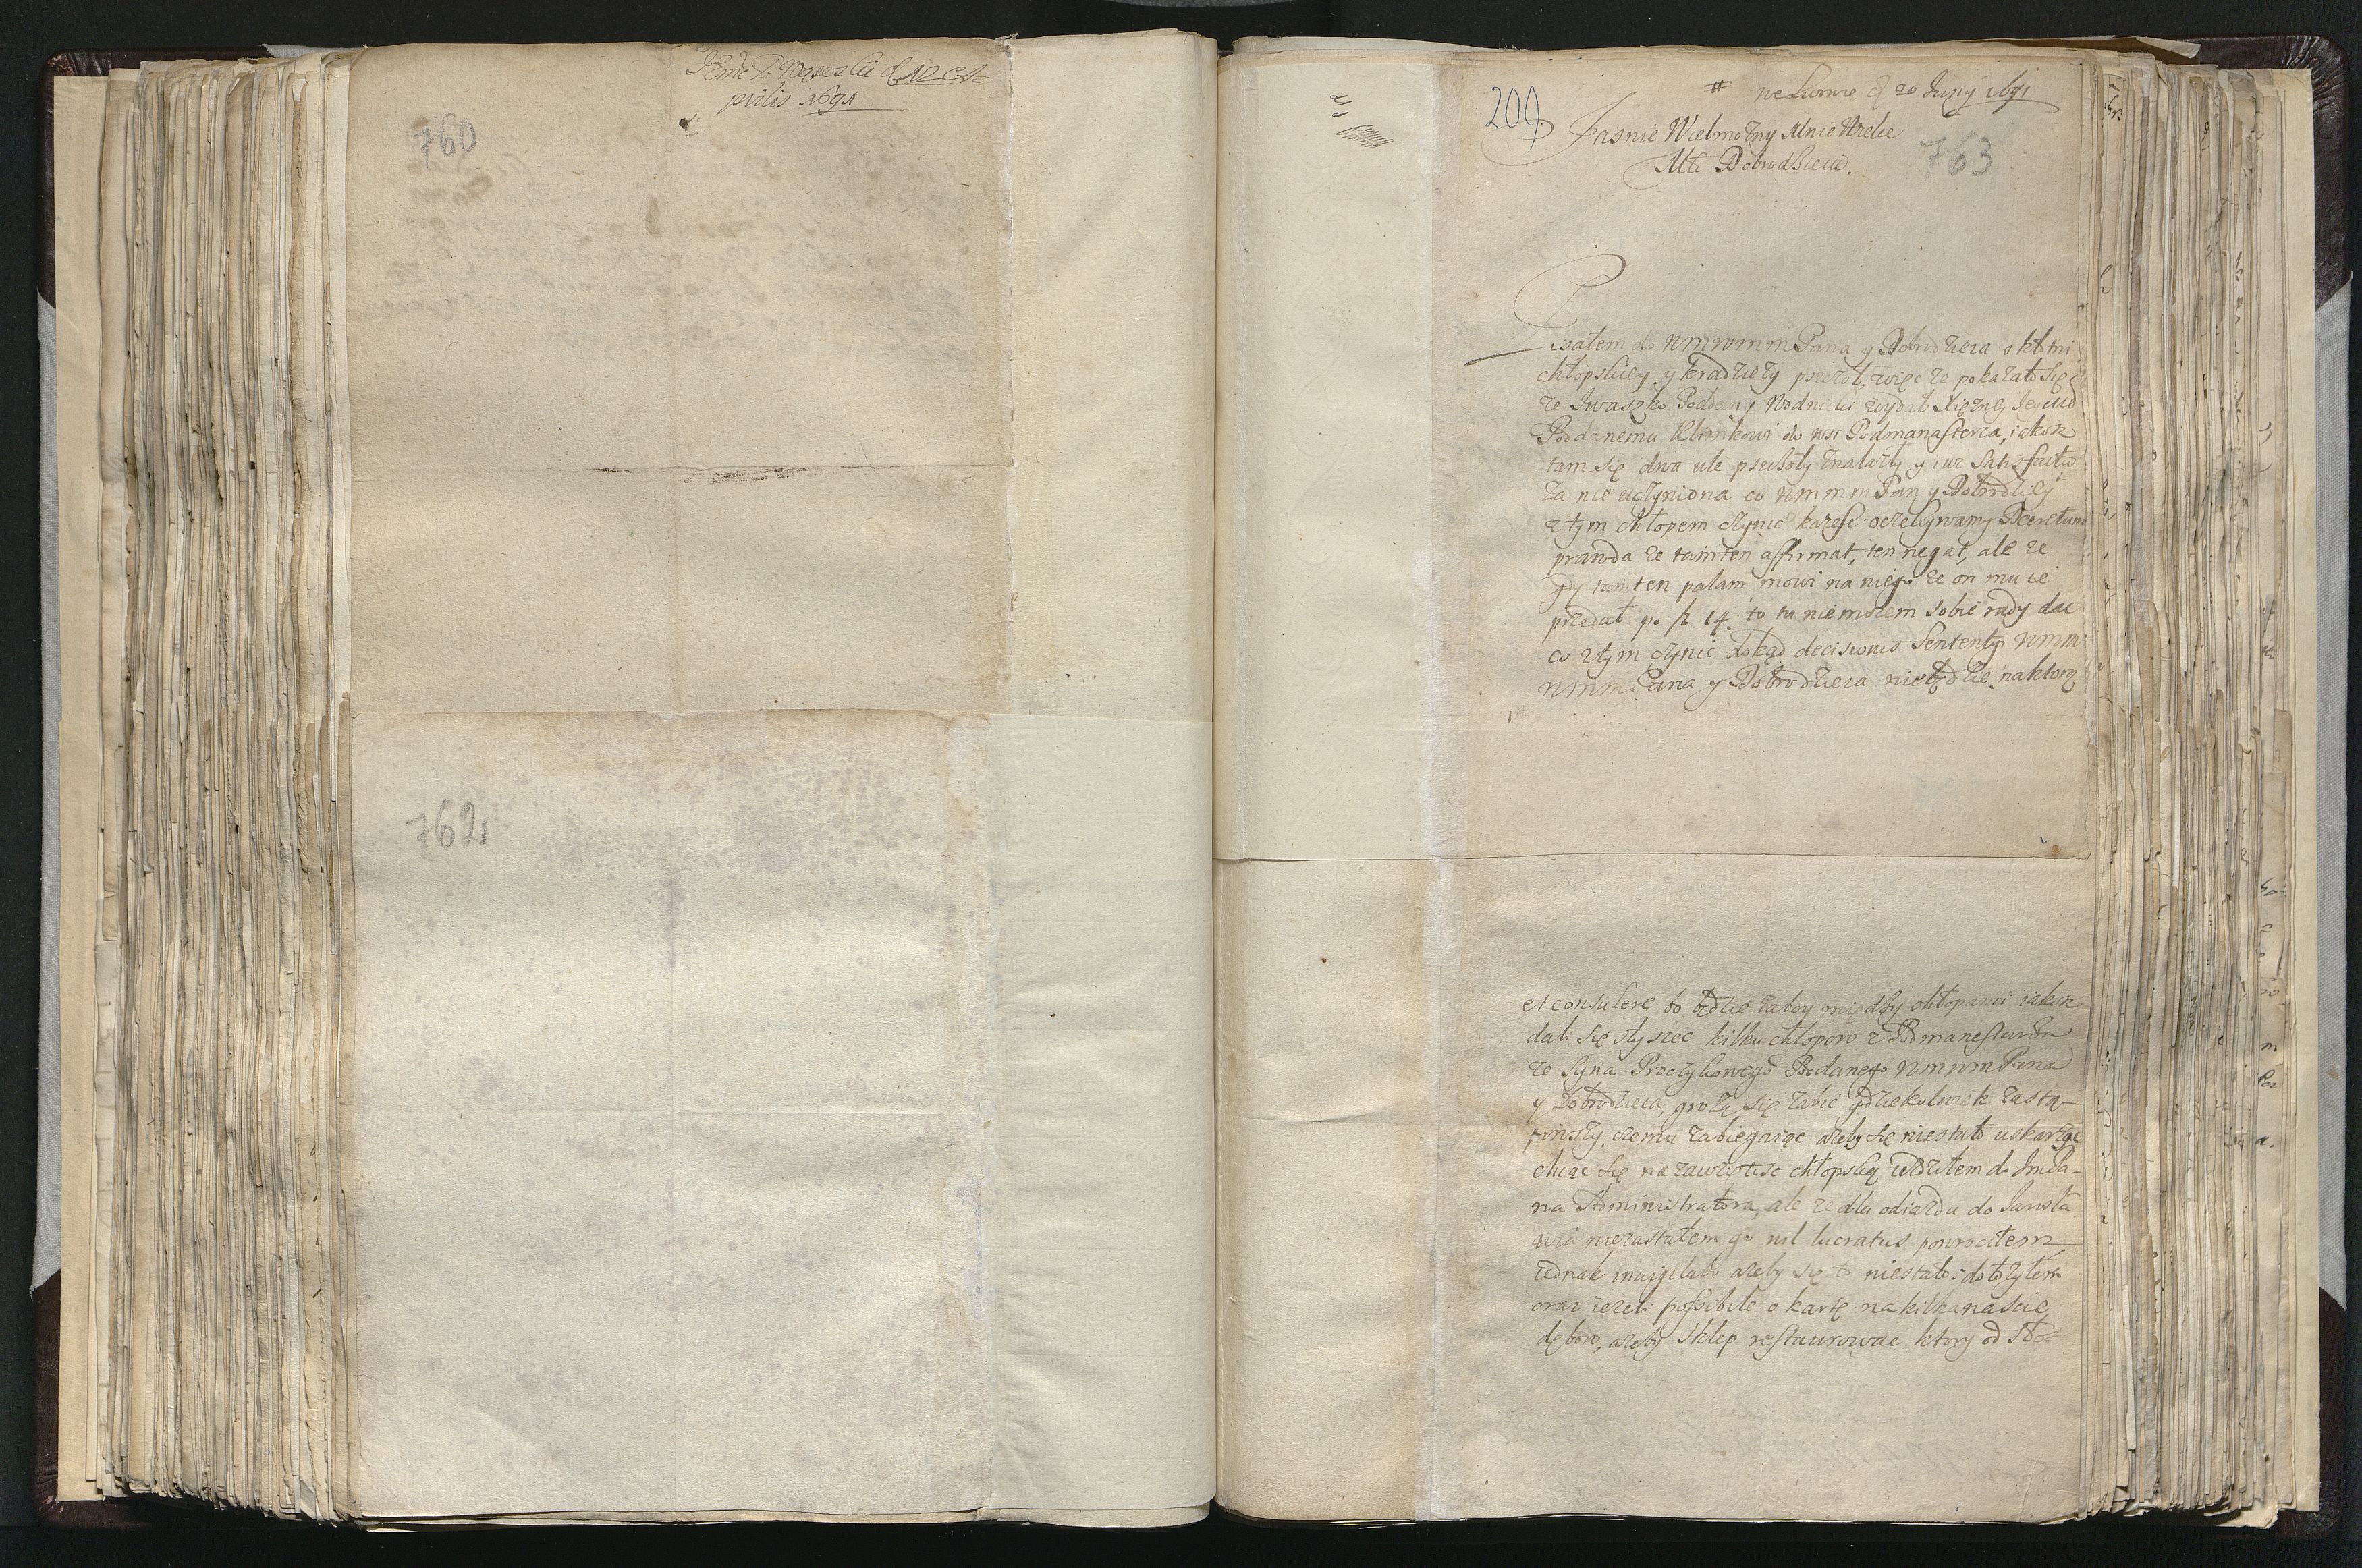 JEmc P. 12 A
prilis 1691
760
762
200
# we Lwowie d 20 Juny 1691
Jasnie Wielmozny Mnie Wielce
Mći Dobrodzieiu.
763
Pisałem do WMWMM Pana y Dobrodzieia o kłotni
chłopskiey y kradzieży pszczoł, więc ze pokazało się
ze Iwaszko Poddany wydał Xiężney Jeymć
Poddanemu Klimkowi do wsi Podmanasterza, iakoz
tam się dwa ule pszczoły znalazły y iuz Satisfactia
za nie uczyniona co WMMM Pan y Dobrodziey
z tym chłopem czynić każesz oczekiwamy Decretum
prawda ze tamten affirmat, ten negat, ale ze
gdy tamten palam mowi na niego ze on mu ie
przedał po fl 14. to tu niemożem sobie rady dac
co z tym czynić dokąd decisionis Sententij WMM
WMM Pana y Dobrodzieia niebędzie, naktorą
et consulere, bo będzie zaboy między chłopami iakoz
dali się słyszec kilku chłopow z Podmanastarza
ze Syna Procykowego Poddanego WMWM Pana
y Dobrodzieia, grożą się zabic gdziekolwiek zastą-
piwszy, czemu zabiegaiąc ażeby się niestało uskarżyc
chcąc się na zawziętosc chłopską iezdziłem do Jmć Pa-
na Administratora, ale ze dla odiazdu do Jarosła
wia niezastałem go nil lucratus powrociłem,
iednak inuigilabo ażeby się to niestało: dołożyłem
oraz ieżeli possibile o kartę na kilkanascie
dębow, ażeby Sklep restaurowac ktory od